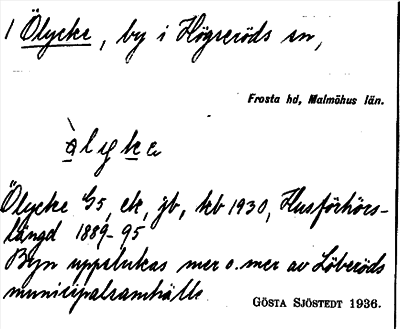 1 Ölycke, by i Högseröds sn,
Frosta hd, Malmöhus län.
àlykε
Ölycke 1/5, ek, jb, kb 1930, Husförhörs-
längd 1889-95
Byn uppslukas mer o. mer av Löberöds
municipalsamhälle
GÖSTA SJÖSTEDT 1936.